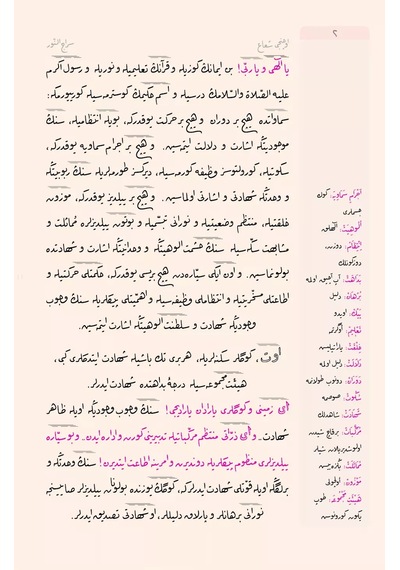 ٢
اوچنجى شعاع
سراج النّور
يا الٰهى و يا ربّى! بن ايمانڭ كوزيله و قرآنڭ تعليميله و نوريله و رسول اكرم
عليه الصّلاة والسّلامڭ درسيله و اسم حكيمڭ كوسترمه‌سيله كورييورم كه:
سماواتده هيچ بر دوران و هيچ بر حركت يوقدركه، بويله انتظاميله، سنڭ
موجوديتڭه اشارت و دلالت ايتمه‌سين. و هيچ بر اجرام سماويه يوقدركه،
سكوتيله، كورولتوسز وظيفه كورمه‌سيله، ديركسز طورمه‌لريله سنڭ ربوبيتڭه
و وحدتڭه شهادتى و اشارتى اولماسين. و هيچ بر ييلديز يوقدركه، موزون
خلقتيله، منتظم وضعيتيله و نورانى تبسّميله و بوتون ييلديزلره مماثلت و
مشابهت سكّه‌سيله سنڭ حشمت الوهيتڭه و وحدانيتڭه اشارت و شهادتده
بولونماسين. و اون ايكى سيّاره‌دن هيچ بريسى يوقدركه، حكمتلى حركتيله و
اطاعتلى مسخّريتيله و انتظاملى وظيفه‌سيله و اهميتلى پيكلريله سنڭ وجوب
وجوديڭه شهادت و سلطنت الوهيتڭه اشارت ايتمه‌سين.
اوت، كوكلر سكنه‌لريله، هربرى تك باشيله شهادت ايتدكلرى كبى،
هيئت مجموعه‌سيله درجۀ بداهتده شهادت ايدرلر.
اى زمينى و كوكلرى يارادان يارادجى! سنڭ وجوب وجوديڭه اويله ظاهر
شهادت. و اى ذرّاتى منتظم مركباتيله تدبيرينى كورن و اداره ايدن. و بو سيّاره
ييلديزلرى منظوم پيكلريله دوندورن و امرينه اطاعت ايتديرن! سنڭ وحدتڭه و
برلگڭه اويله قوّتلى شهادت ايدرلركه، كوكڭ يوزنده بولونان ييلديزلر صاييسنجه
نورانى برهانلر و پارلاق دليللر، او شهادتى تصديق ايدرلر.
اجرام سماويه: كوك
جسملرى
الوهيت: الٰهلق
انتظام: دوزن،
دوزكونلك
بداهت: آپ آچيق اولمه
برهان: دليل
پيك: اويدو
تعليم: اوگرتم
خلقت: ياراتيليش
دلالت: دليل اولمه
دوران: دونوب طولانمه
سكوت: صوصمه
شهادت: شاهدلك
مركبات: بر قاچ شيدن
مماثلت: بڭزه‌يش
موزون: اولچولى
هيئت مجموعه: طوپ